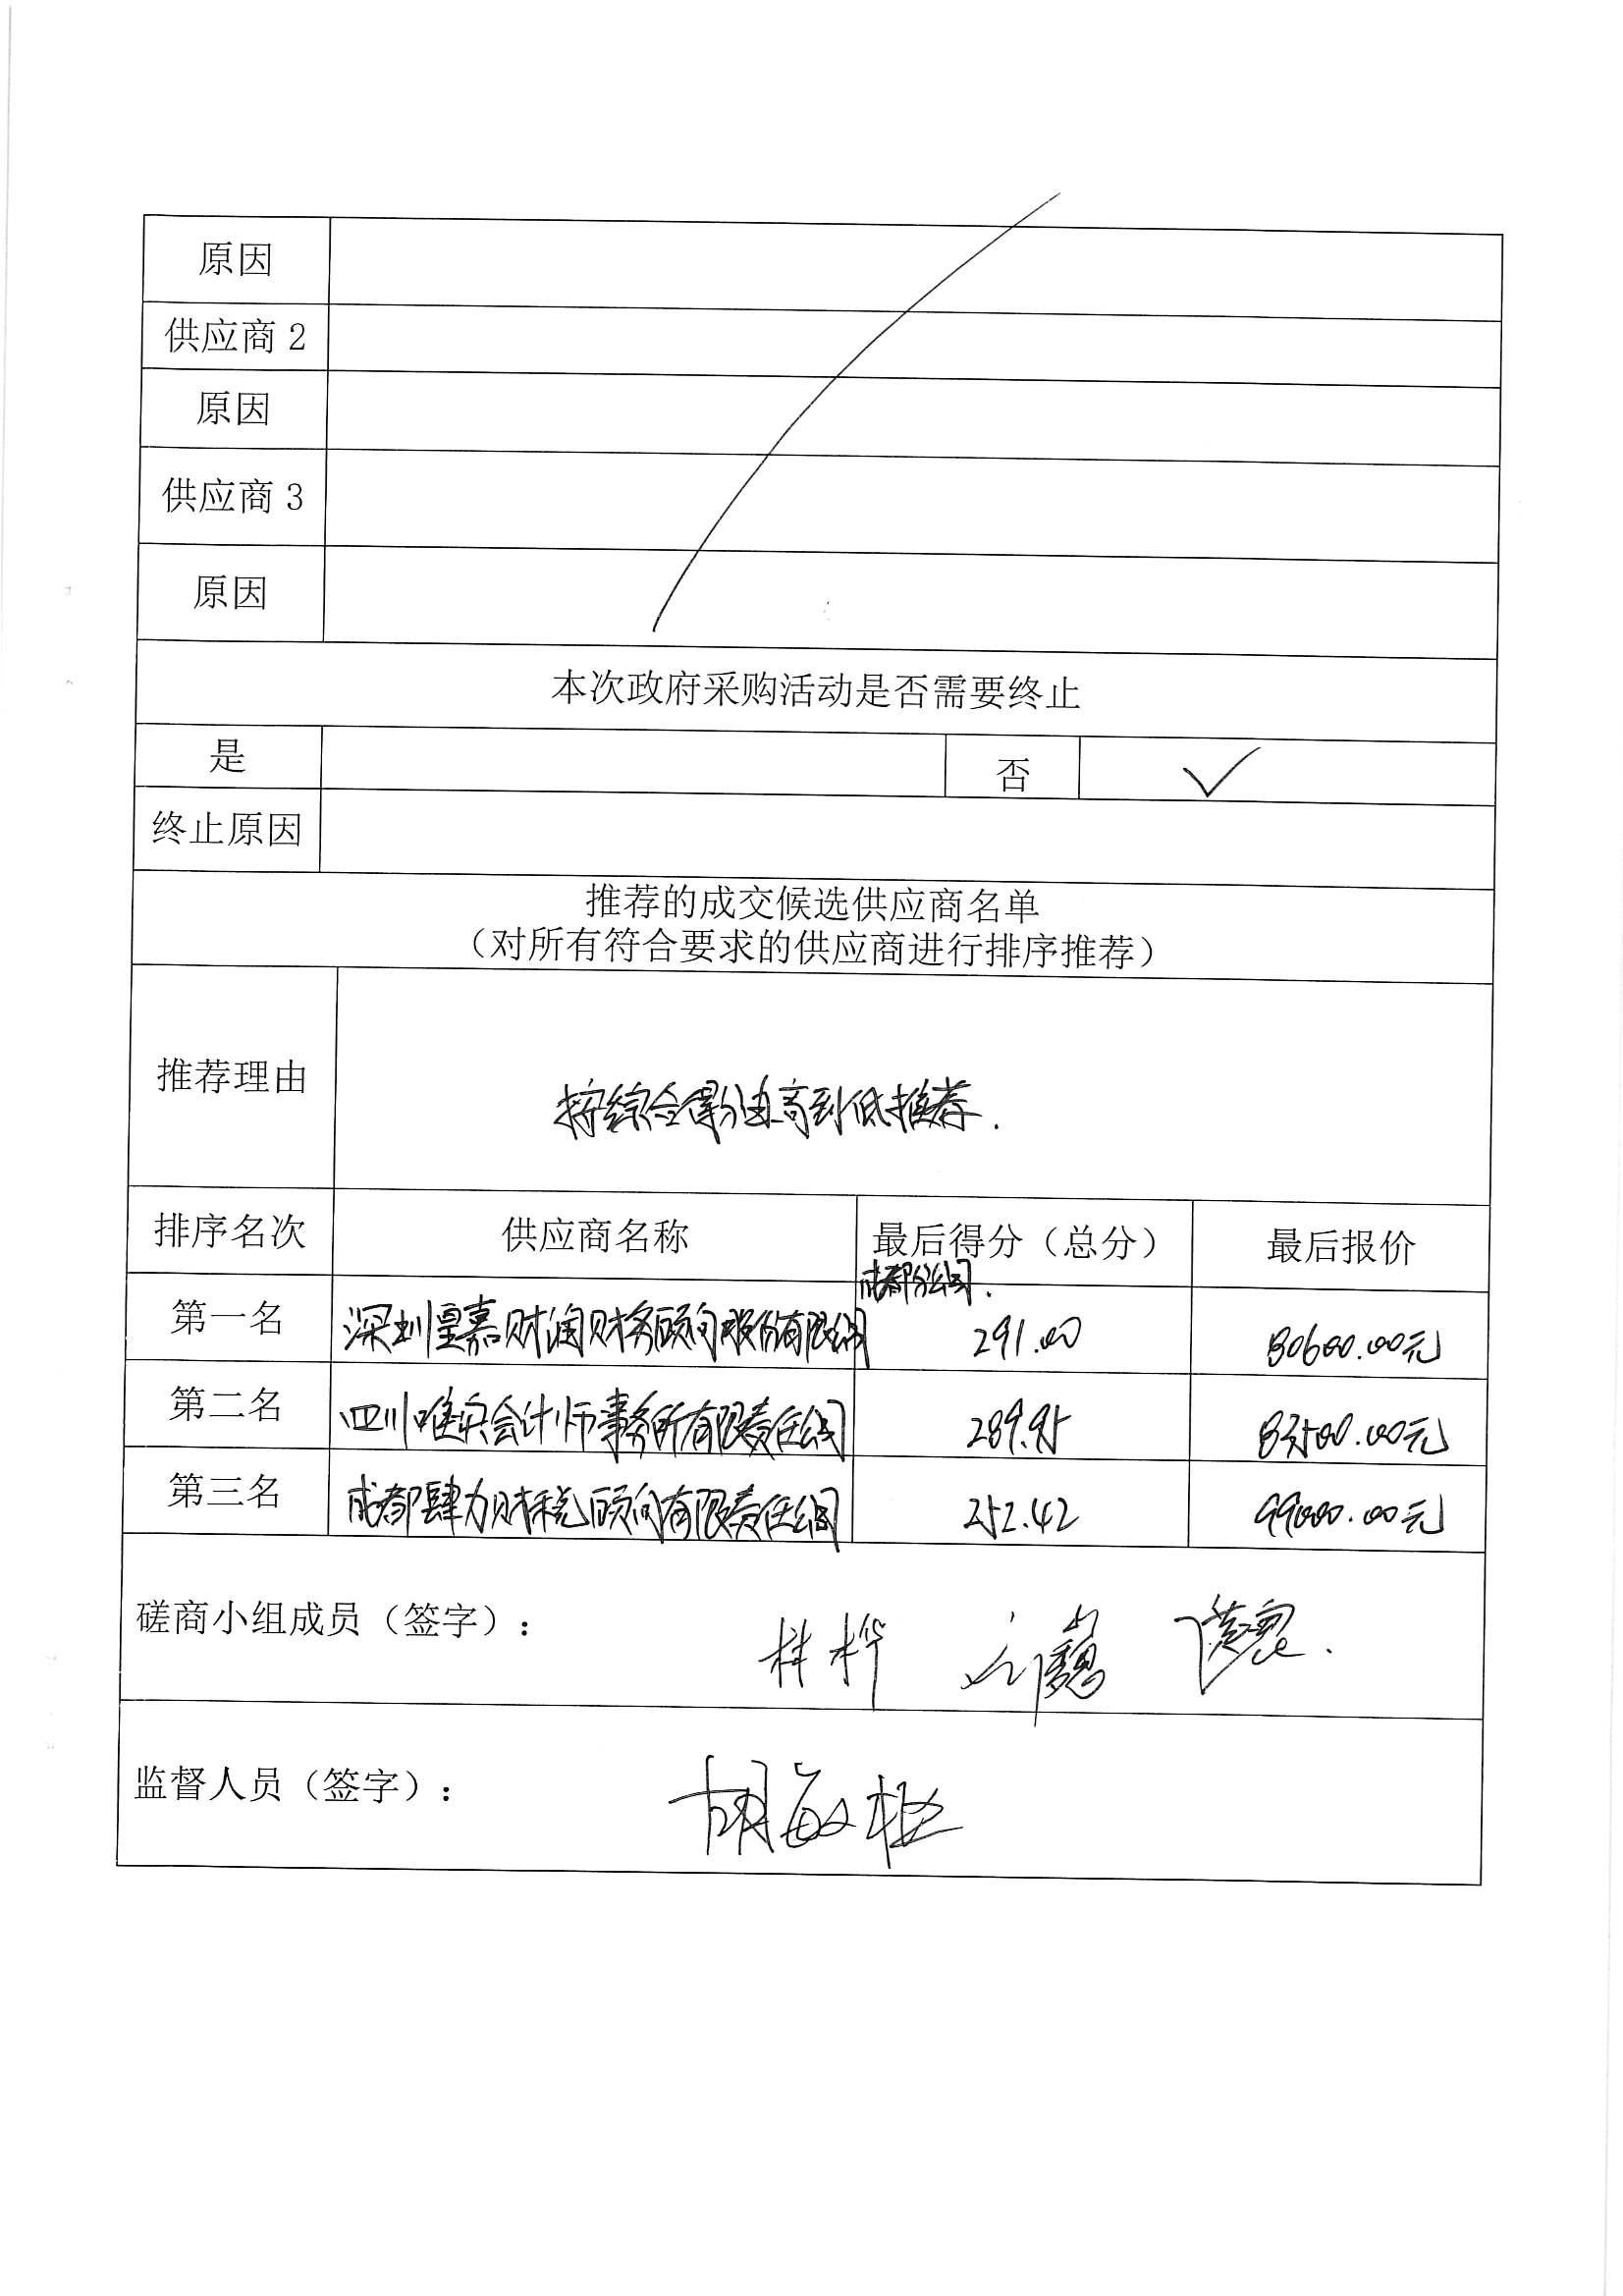 原因
供应商 2
原因
供应商 3
原因
本次政府采购活动是否需要终止
是 否 ✓
终止原因
推荐的成交候选供应商名单
（对所有符合要求的供应商进行排序推荐）
推荐理由 按综合得分由高到低推荐.
排序名次 供应商名称 最后得分（总分） 最后报价
成都分公司.
第一名 深圳皇嘉财润财务顾问股份有限公司 291.00 80600.00元
第二名 四川唯实会计师事务所有限责任公司 289.95 83500.00元
第三名 成都肆力财税顾问有限责任公司 252.42 99000.00元
磋商小组成员（签字）：
监督人员（签字）： 胡敏